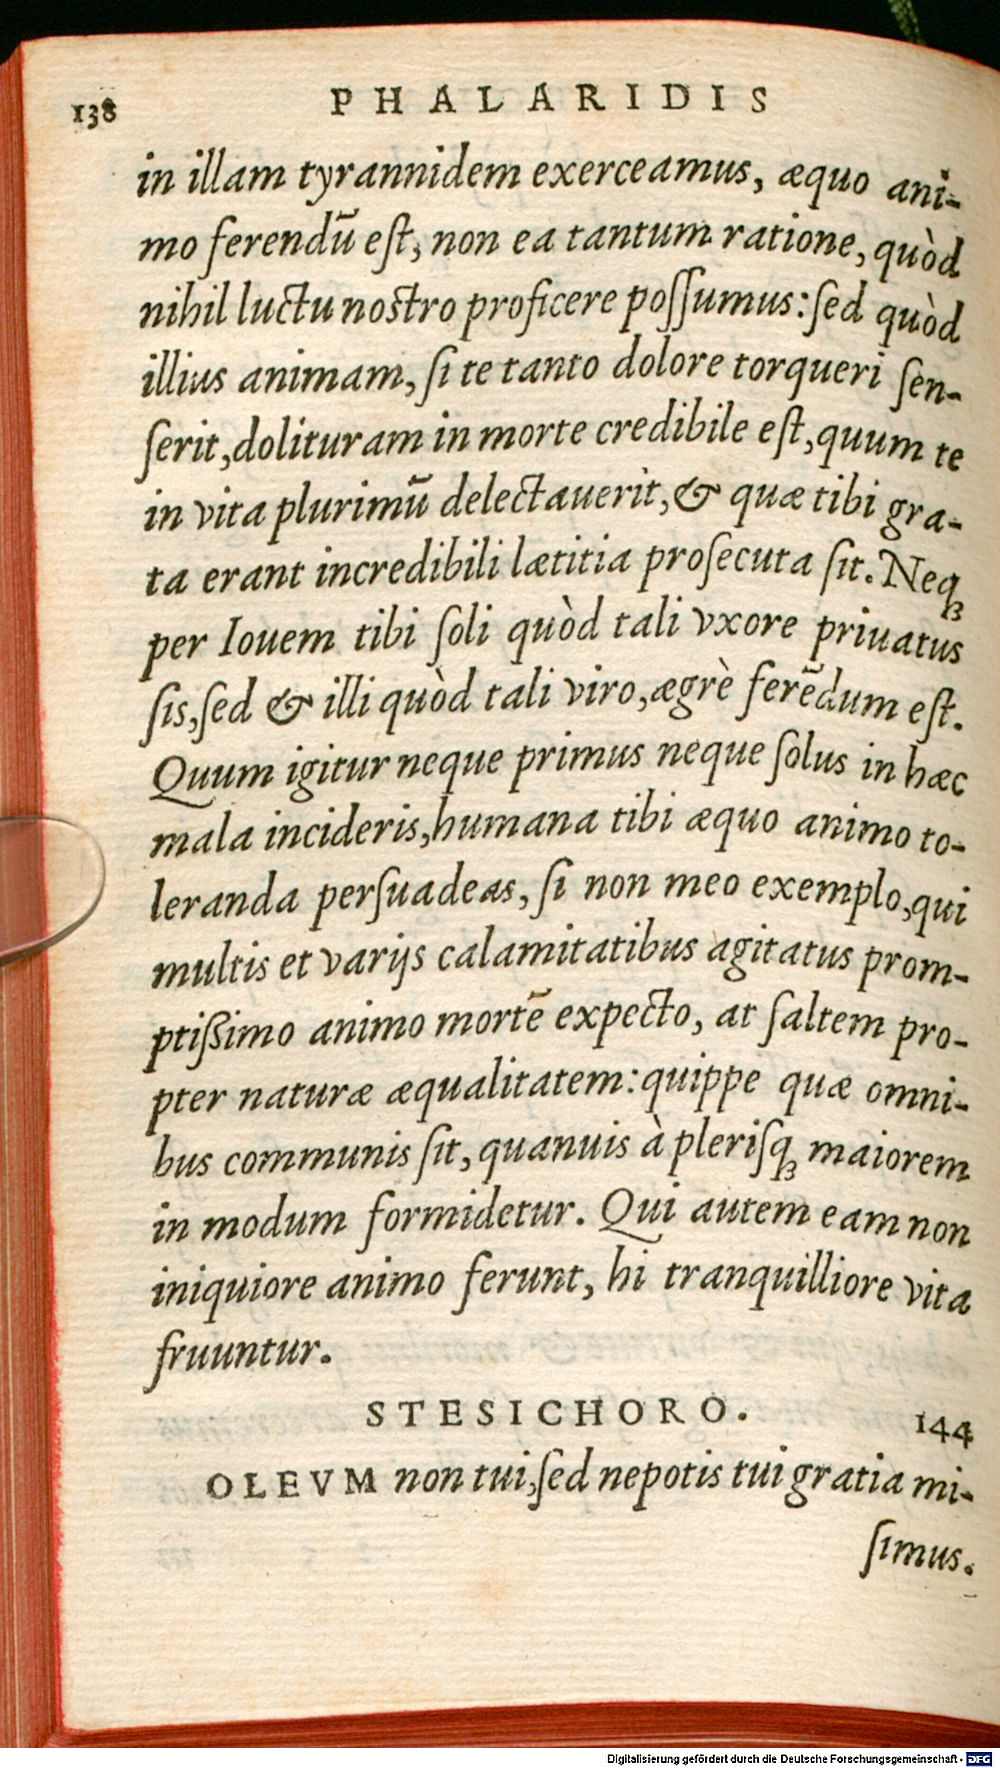 138 PHALARIDIS
in illam tyrannidem exerceamus, æquo ani-
mo ferendū eſt, non ea tantum ratione, quòd
nihil luctu nostro proficere poſſumus: ſed quòd
illius animam, ſi te tanto dolore torqueri ſen-
ſerit, dolituram in morte credibile eſt, quum te
in vita plurimū delectauerit, & quæ tibi gra-
ta erant incredibili lætitia proſecuta ſit. Neqꝫ
per Iouem tibi ſoli quòd tali vxore priuatus
ſis, ſed & illi quòd tali viro, ægrè ferēdum eſt.
Quum igitur neque primus neque ſolus in hæc
mala incideris, humana tibi æquo animo to-
leranda perſuadeas, ſi non meo exemplo, qui
multis et varijs calamitatibus agitatus prom-
ptißimo animo mortē expecto, at ſaltem pro-
pter naturæ æqualitatem: quippe quæ omni-
bus communis ſit, quanuis à pleriſqꝫ maiorem
in modum formidetur. Qui autem eam non
iniquiore animo ferunt, hi tranquilliore vita
fruuntur.
STESICHORO. 144
OLEVM non tui, ſed nepotis tui gratia mi-
ſimus.
Digitalisierung gefördert durch die Deutsche Forschungsgemeinschaft - DFG